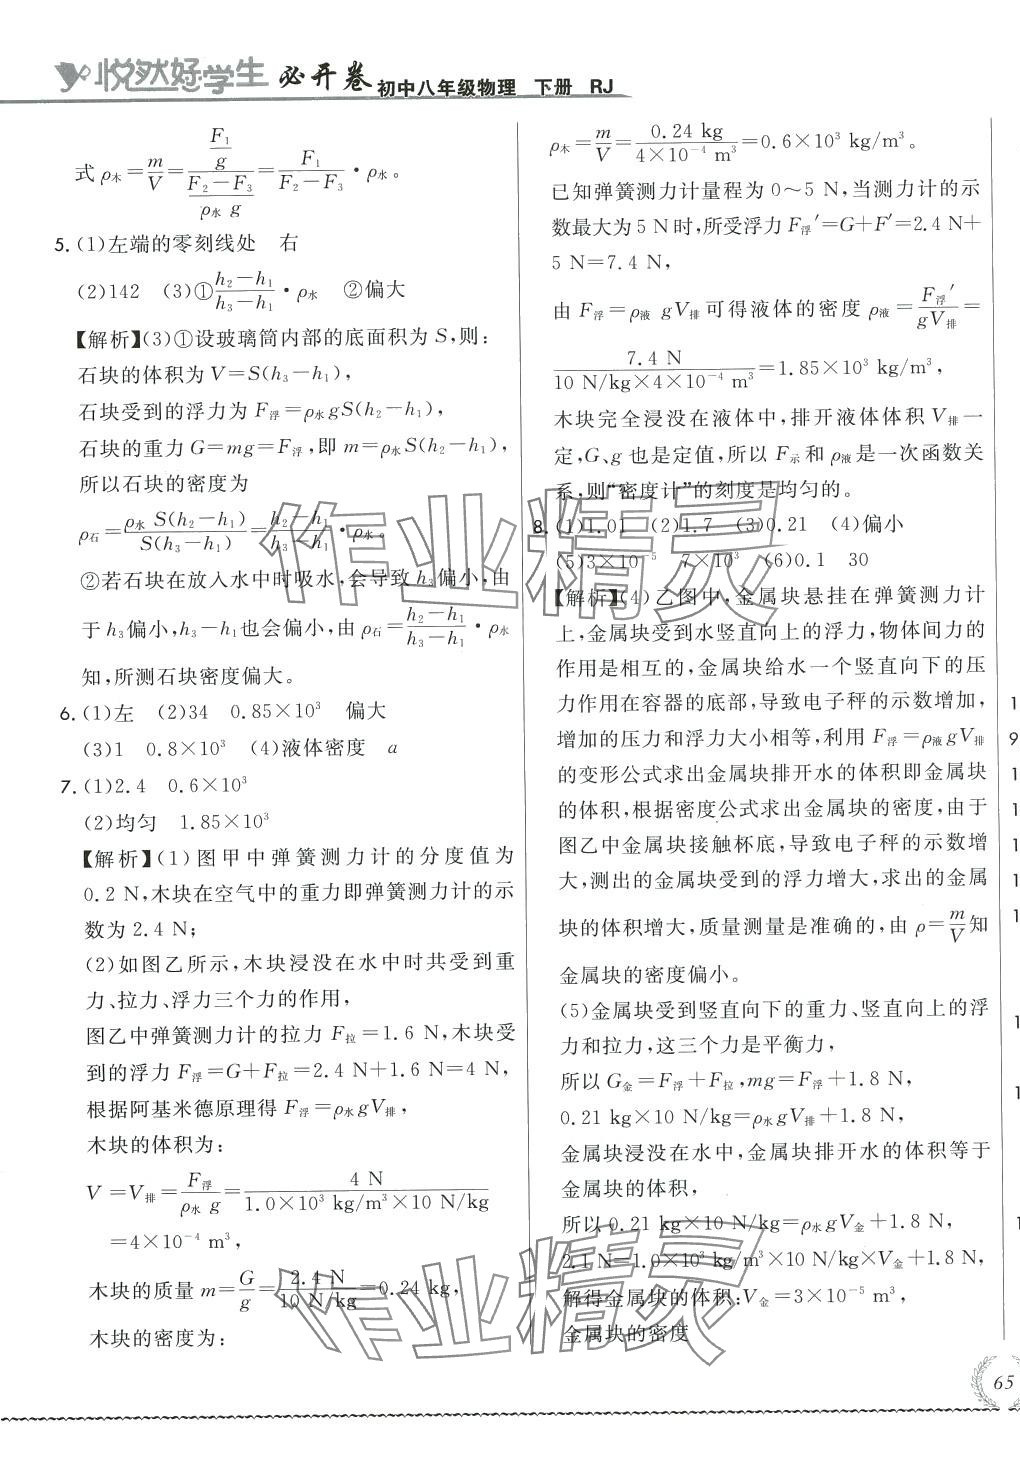 悦然好学生 必开卷 初中八年级物理 下册 RJ
式 ρ木=m/V=(F₁/g)/((F₂-F₃)/(ρ水 g))=F₁/(F₂-F₃)·ρ水。
5. (1)左端的零刻线处 右
(2)142 (3)①(h₂-h₁)/(h₃-h₁)·ρ水 ②偏大
【解析】(3)①设玻璃筒内部的底面积为 S,则:
石块的体积为 V=S(h₃-h₁),
石块受到的浮力为 F浮=ρ水gS(h₂-h₁),
石块的重力 G=mg=F浮,即 m=ρ水S(h₂-h₁),
所以石块的密度为
ρ石=ρ水 S(h₂-h₁)/S(h₃-h₁)=(h₂-h₁)/(h₃-h₁)·ρ水。
②若石块在放入水中时吸水,会导致 h₃偏小,由
于 h₃偏小,h₃-h₁也会偏小,由 ρ石=(h₂-h₁)/(h₃-h₁)·ρ水
知,所测石块密度偏大。
6. (1)左 (2)34 0.85×10³ 偏大
(3)1 0.8×10³ (4)液体密度 a
7. (1)2.4 0.6×10³
(2)均匀 1.85×10³
【解析】(1)图甲中弹簧测力计的分度值为
0.2 N,木块在空气中的重力即弹簧测力计的示
数为 2.4 N;
(2)如图乙所示,木块浸没在水中时共受到重
力、拉力、浮力三个力的作用,
图乙中弹簧测力计的拉力 F拉=1.6 N,木块受
到的浮力 F浮=G+F拉=2.4 N+1.6 N=4 N,
根据阿基米德原理得 F浮=ρ水gV排,
木块的体积为:
V=V排=F浮/(ρ水 g)=4 N/(1.0×10³ kg/m³×10 N/kg)
=4×10⁻⁴ m³,
木块的质量 m=G/g=2.4 N/(10 N/kg)=0.24 kg,
木块的密度为:
ρ木=m/V=0.24 kg/(4×10⁻⁴ m³)=0.6×10³ kg/m³。
已知弹簧测力计量程为 0～5 N,当测力计的示
数最大为 5 N时,所受浮力 F浮′=G+F′=2.4 N+
5 N=7.4 N,
由 F浮=ρ液 gV排 可得液体的密度 ρ液=F浮′/(gV排)=
7.4 N/(10 N/kg×4×10⁻⁴ m³)=1.85×10³ kg/m³,
木块完全浸没在液体中,排开液体体积 V排一
定,G、g 也是定值,所以 F示 和 ρ液是一次函数关
系,则“密度计”的刻度是均匀的。
8. (1)1.01 (2)1.7 (3)0.21 (4)偏小
(5)3×10⁻⁵ 7×10³ (6)0.1 30
【解析】(4)乙图中,金属块悬挂在弹簧测力计
上,金属块受到水竖直向上的浮力,物体间力的
作用是相互的,金属块给水一个竖直向下的压
力作用在容器的底部,导致电子秤的示数增加,
增加的压力和浮力大小相等,利用 F浮=ρ液gV排
的变形公式求出金属块排开水的体积即金属块
的体积,根据密度公式求出金属块的密度,由于
图乙中金属块接触杯底,导致电子秤的示数增
大,测出的金属块受到的浮力增大,求出的金属
块的体积增大,质量测量是准确的,由 ρ=m/V知
金属块的密度偏小。
(5)金属块受到竖直向下的重力、竖直向上的浮
力和拉力,这三个力是平衡力,
所以 G金=F浮+F拉,mg=F浮+1.8 N,
0.21 kg×10 N/kg=ρ水gV排+1.8 N,
金属块浸没在水中,金属块排开水的体积等于
金属块的体积,
所以 0.21 kg×10 N/kg=ρ水gV金+1.8 N,
2.1 N=1.0×10³ kg/m³×10 N/kg×V金+1.8 N,
解得金属块的体积:V金=3×10⁻⁵ m³,
金属块的密度
65
作业精灵
作业精灵